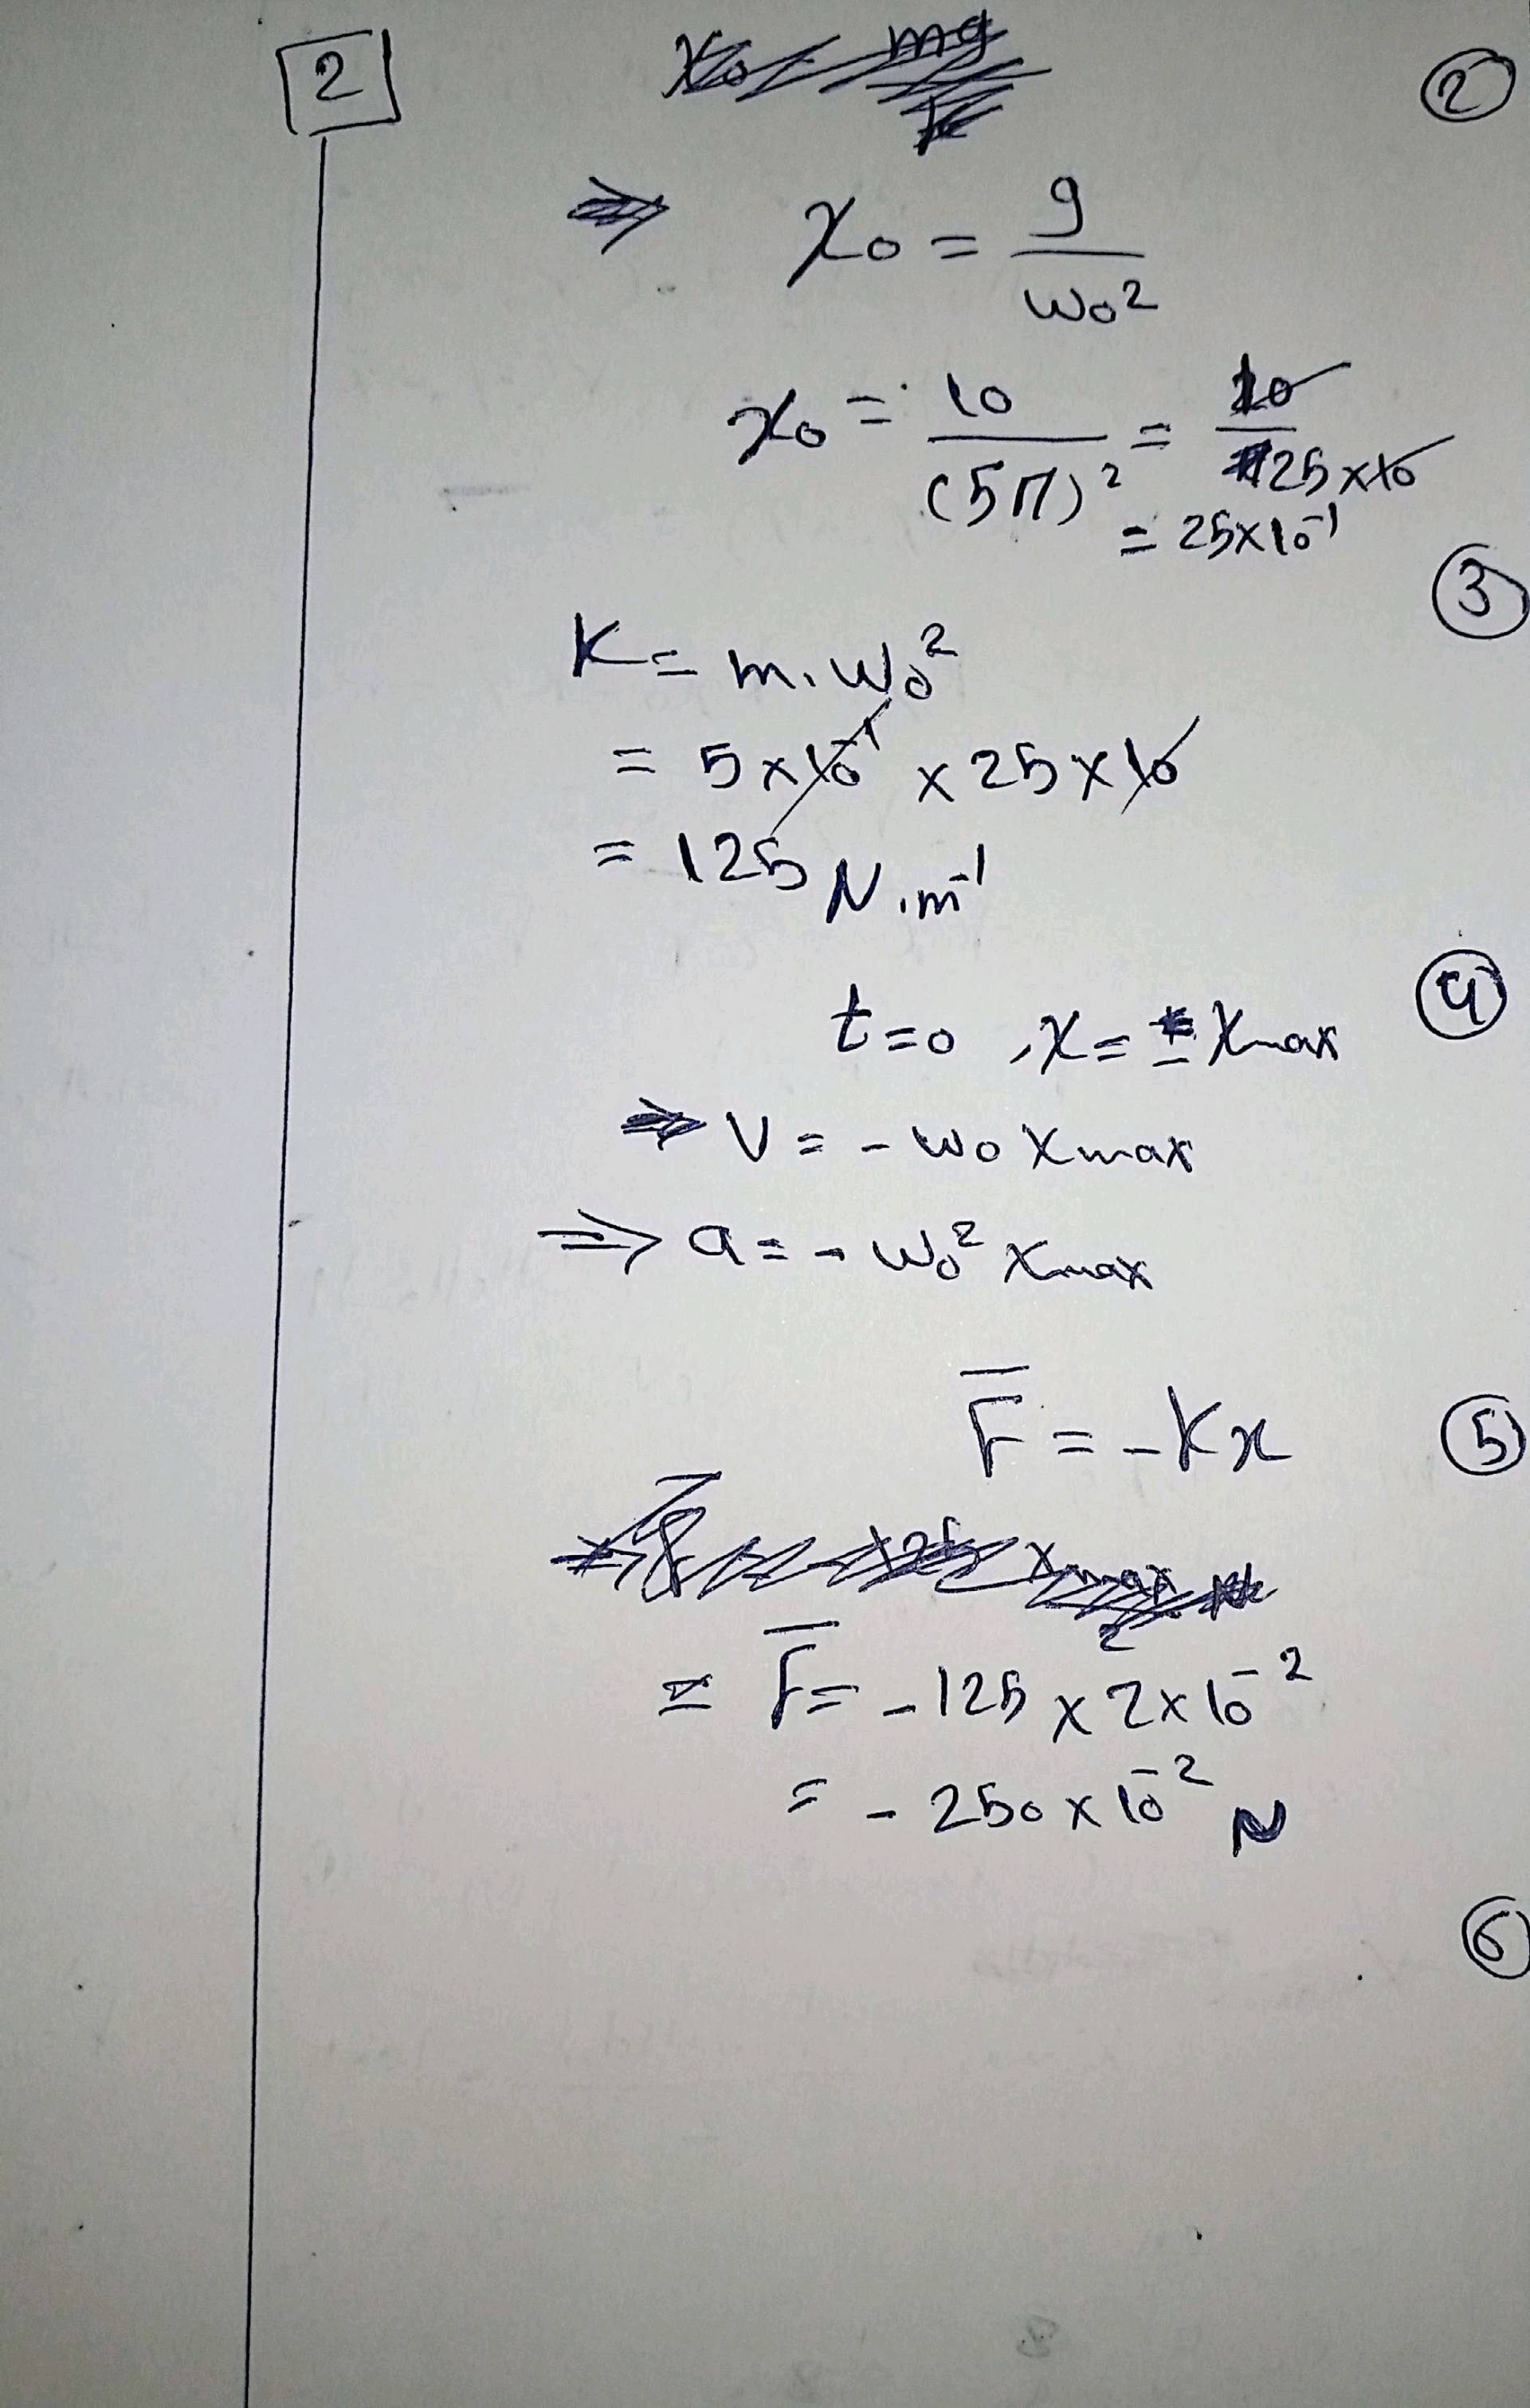 2
②
⇒ x₀ = g / ω₀²
x₀ = 10 / (5π)² = 10 / 25×10
= 25×10⁻¹
③
K = m.ω₀²
= 5×10⁻¹ × 25×10
= 125 N.m⁻¹
④
t=0 , x = ± Xmax
⇒ V = - ω₀ Xmax
⇒ a = - ω₀² Xmax
⑤
F̅ = - Kx
= F̅ = - 125 × 2×10⁻²
= - 250×10⁻² N
⑥